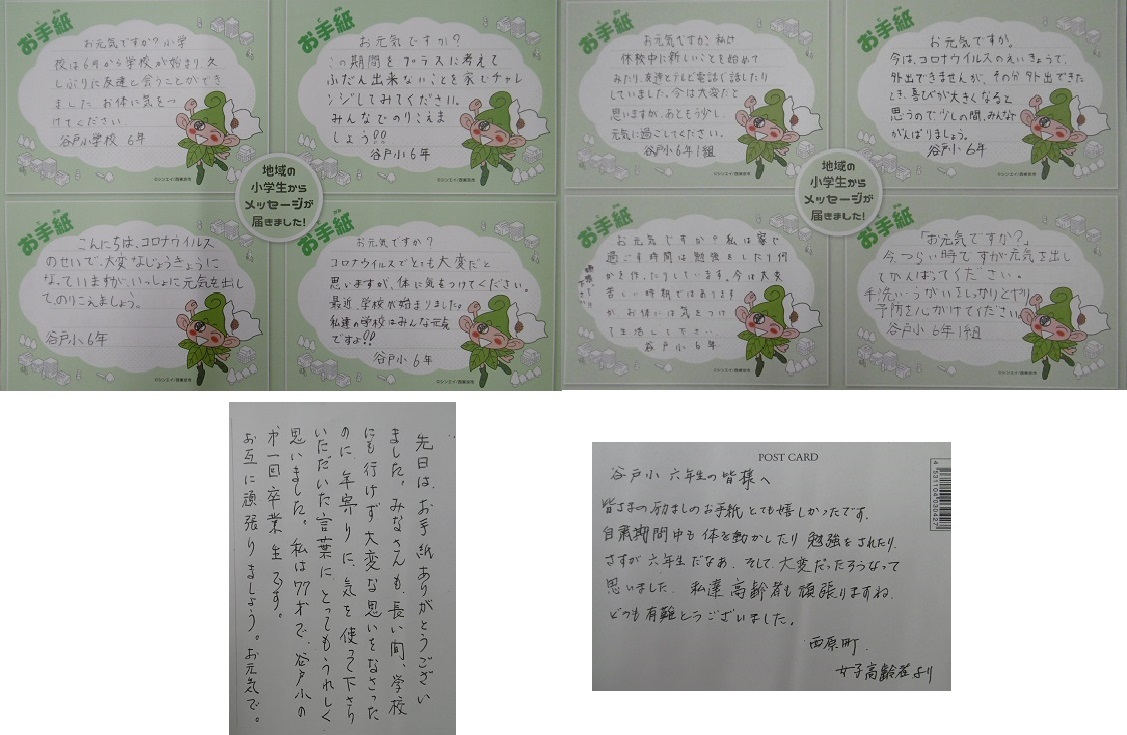 お手紙
お元気ですか？小学
校は6月から学校が始まり、久
しぶりに友達と会うことができ
ました。お体に気をつ
けてください。
谷戸小学校 6年
©シンエイ/西東京市
お手紙
お元気ですか？
この期間をプラスに考えて
ふだん出来ないことを家でチャレ
ンジしてみてください。
みんなでのりこえま
しょう!!
谷戸小6年
©シンエイ/西東京市
地域の
小学生から
メッセージが
届きました！
お手紙
こんにちは、コロナウイルス
のせいで、大変なじょうきょうに
なっていますが、いっしょに元気を出し
てのりこえましょう。
谷戸小6年
©シンエイ/西東京市
お手紙
お元気ですか？
コロナウイルスでとても大変だと
思いますが、体に気をつけてください。
最近、学校が始まりました。
私達の学校はみんな元気
ですよ!!
谷戸小6年
©シンエイ/西東京市
お手紙
お元気ですか？私は
休校中に新しいことを始めて
みたり、友達とテレビ電話で話したり
していました。今は大変だと
思いますが、あともう少し、
元気に過ごしてください。
谷戸小6年1組
©シンエイ/西東京市
お手紙
お元気ですか。
今は、コロナウイルスのえいきょうで、
外出できませんが、その分外出できた
とき、喜びが大きくなると
思うので少しの間、みんなで
がんばりましょう。
谷戸小6年
©シンエイ/西東京市
地域の
小学生から
メッセージが
届きました！
お手紙
お元気ですか？私は家で
過ごす時間は勉強をしたり何
かを作ったりしています。今は大変
苦しい時期ではあります
が、お体には気をつけ
て生活して下さい
谷戸小6年
©シンエイ/西東京市
お手紙
「お元気ですか？」
今、つらい時ですが元気を出し
てがんばってください。
手洗い、うがいをしっかりとやり
予防を心がけてください。
谷戸小6年1組
©シンエイ/西東京市
先日は、お手紙ありがとうござい
ました。みなさんも、長い間、学校
にも行けず大変な思いをなさった
のに、年寄りに、気を使って下さり
いただいた言葉に、とってもうれしく
思いました。私は77才で、谷戸小の
第一回卒業生です。
お互に頑張りましょう。お元気で。
POST CARD
谷戸小 六年生の皆様へ
皆さまの励ましのお手紙とても嬉しかったです。
自粛期間中も体を動かしたり勉強をされたり、
さすが六年生だなあ、そして、大変だったろうなって
思いました。私達高齢者も頑張りますね。
どうも有難とうございました。
西原町
女子高齢者より
4531104030427